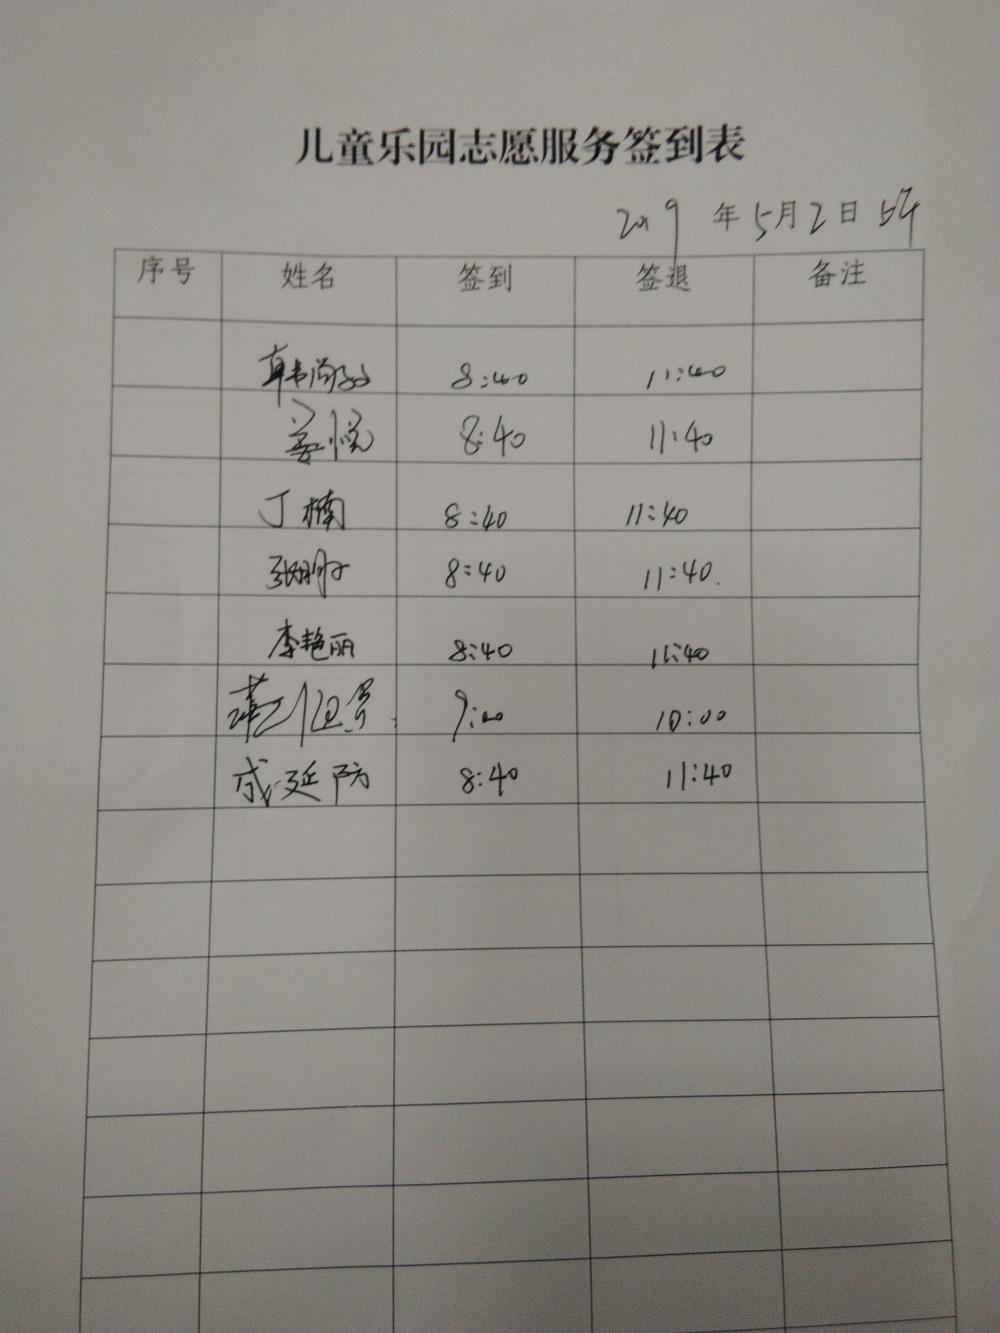 儿童乐园志愿服务签到表
2019 年 5月2日
序号 姓名 签到 签退 备注
8:40 11:40
姜悦 8:40 11:40
丁楠 8:40 11:40
8:40 11:40.
李艳丽 8:40 11:40
9:00 10:00
成延防 8:40 11:40